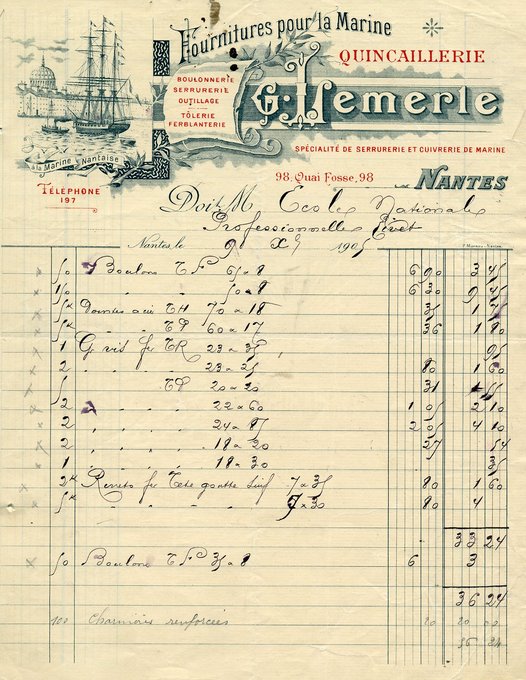 Fournitures pour la Marine
QUINCAILLERIE
BOULONNERIE
SERRURERIE
OUTILLAGE
TÔLERIE
FERBLANTERIE
G. Lemerle
à la Marine Nantaise
SPÉCIALITÉ DE SERRURERIE ET CUIVRERIE DE MARINE
98, Quai Fosse, 98
NANTES
TÉLÉPHONE
197
Doit M Ecole Nationale
Professionnelle Livet
Nantes, le 9 X 1905
50 Boulons TF 65 x 8 6 90 3 45
50 x 8 6 30 9 45
Pointes TH 70 x 18 35 1
" " TP 60 x 17 36 1 80
1 G vis fer TR 23 x 35 95
2 " " " 23 x 25 80 1 60
TP 20 x 20 31
2 " " " 22 x 60 1 05 2 10
2 " " " 24 x 2 05 4 10
2 " " " 19 x 20 27 54
1 " " " 18 x 30 35
2K Rivets fer Tête goutte suif 7 x 35 80 1 60
5K " " " 7 x 30 80 4
33 24
50 Boulons TF 35 x 8 6 3
36 24
100 Charnières renforcées 20 20 00
56 24